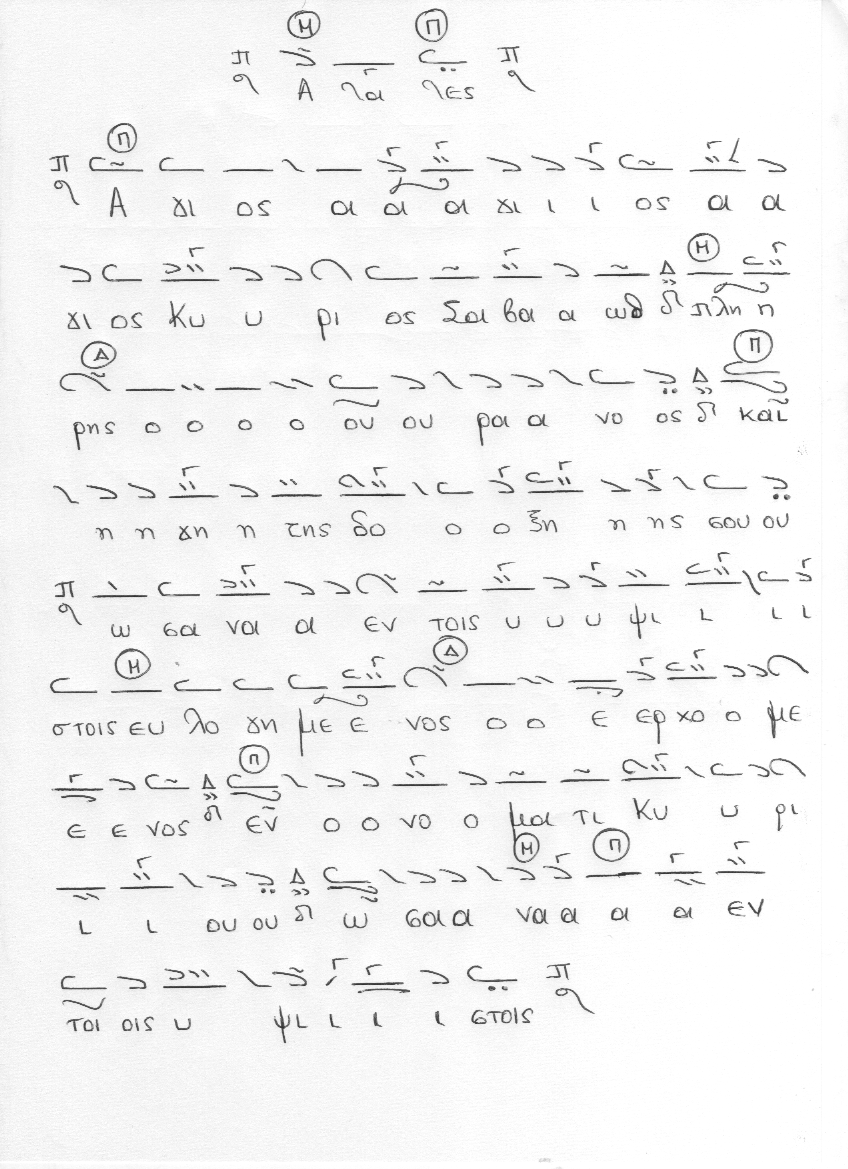 Μ Π
π Α να νες π
Π
π Α γι ος α α α γι ι ι ος α α
Μ
γι ος Κυ υ ρι ος Σα βα α ωθ Δ πλη η
Δ Π
ρης ο ο ο ο ου ου ρα α νο ος Δ και
η η γη η της δο ο ο ξη η ης σου ου
π ω σα να α εν τοις υ υ υ ψι ι ι ι
Μ Δ
στοις ευ λο γη με ε νος ο ο ε ερ χο ο με
Π
ε ε νος Δ εν ο ο νο ο μα τι Κυ υ ρι
Μ Π
ι ι ου ου Δ ω σα α να α α α εν
τοι οις υ ψι ι ι ι στοις π